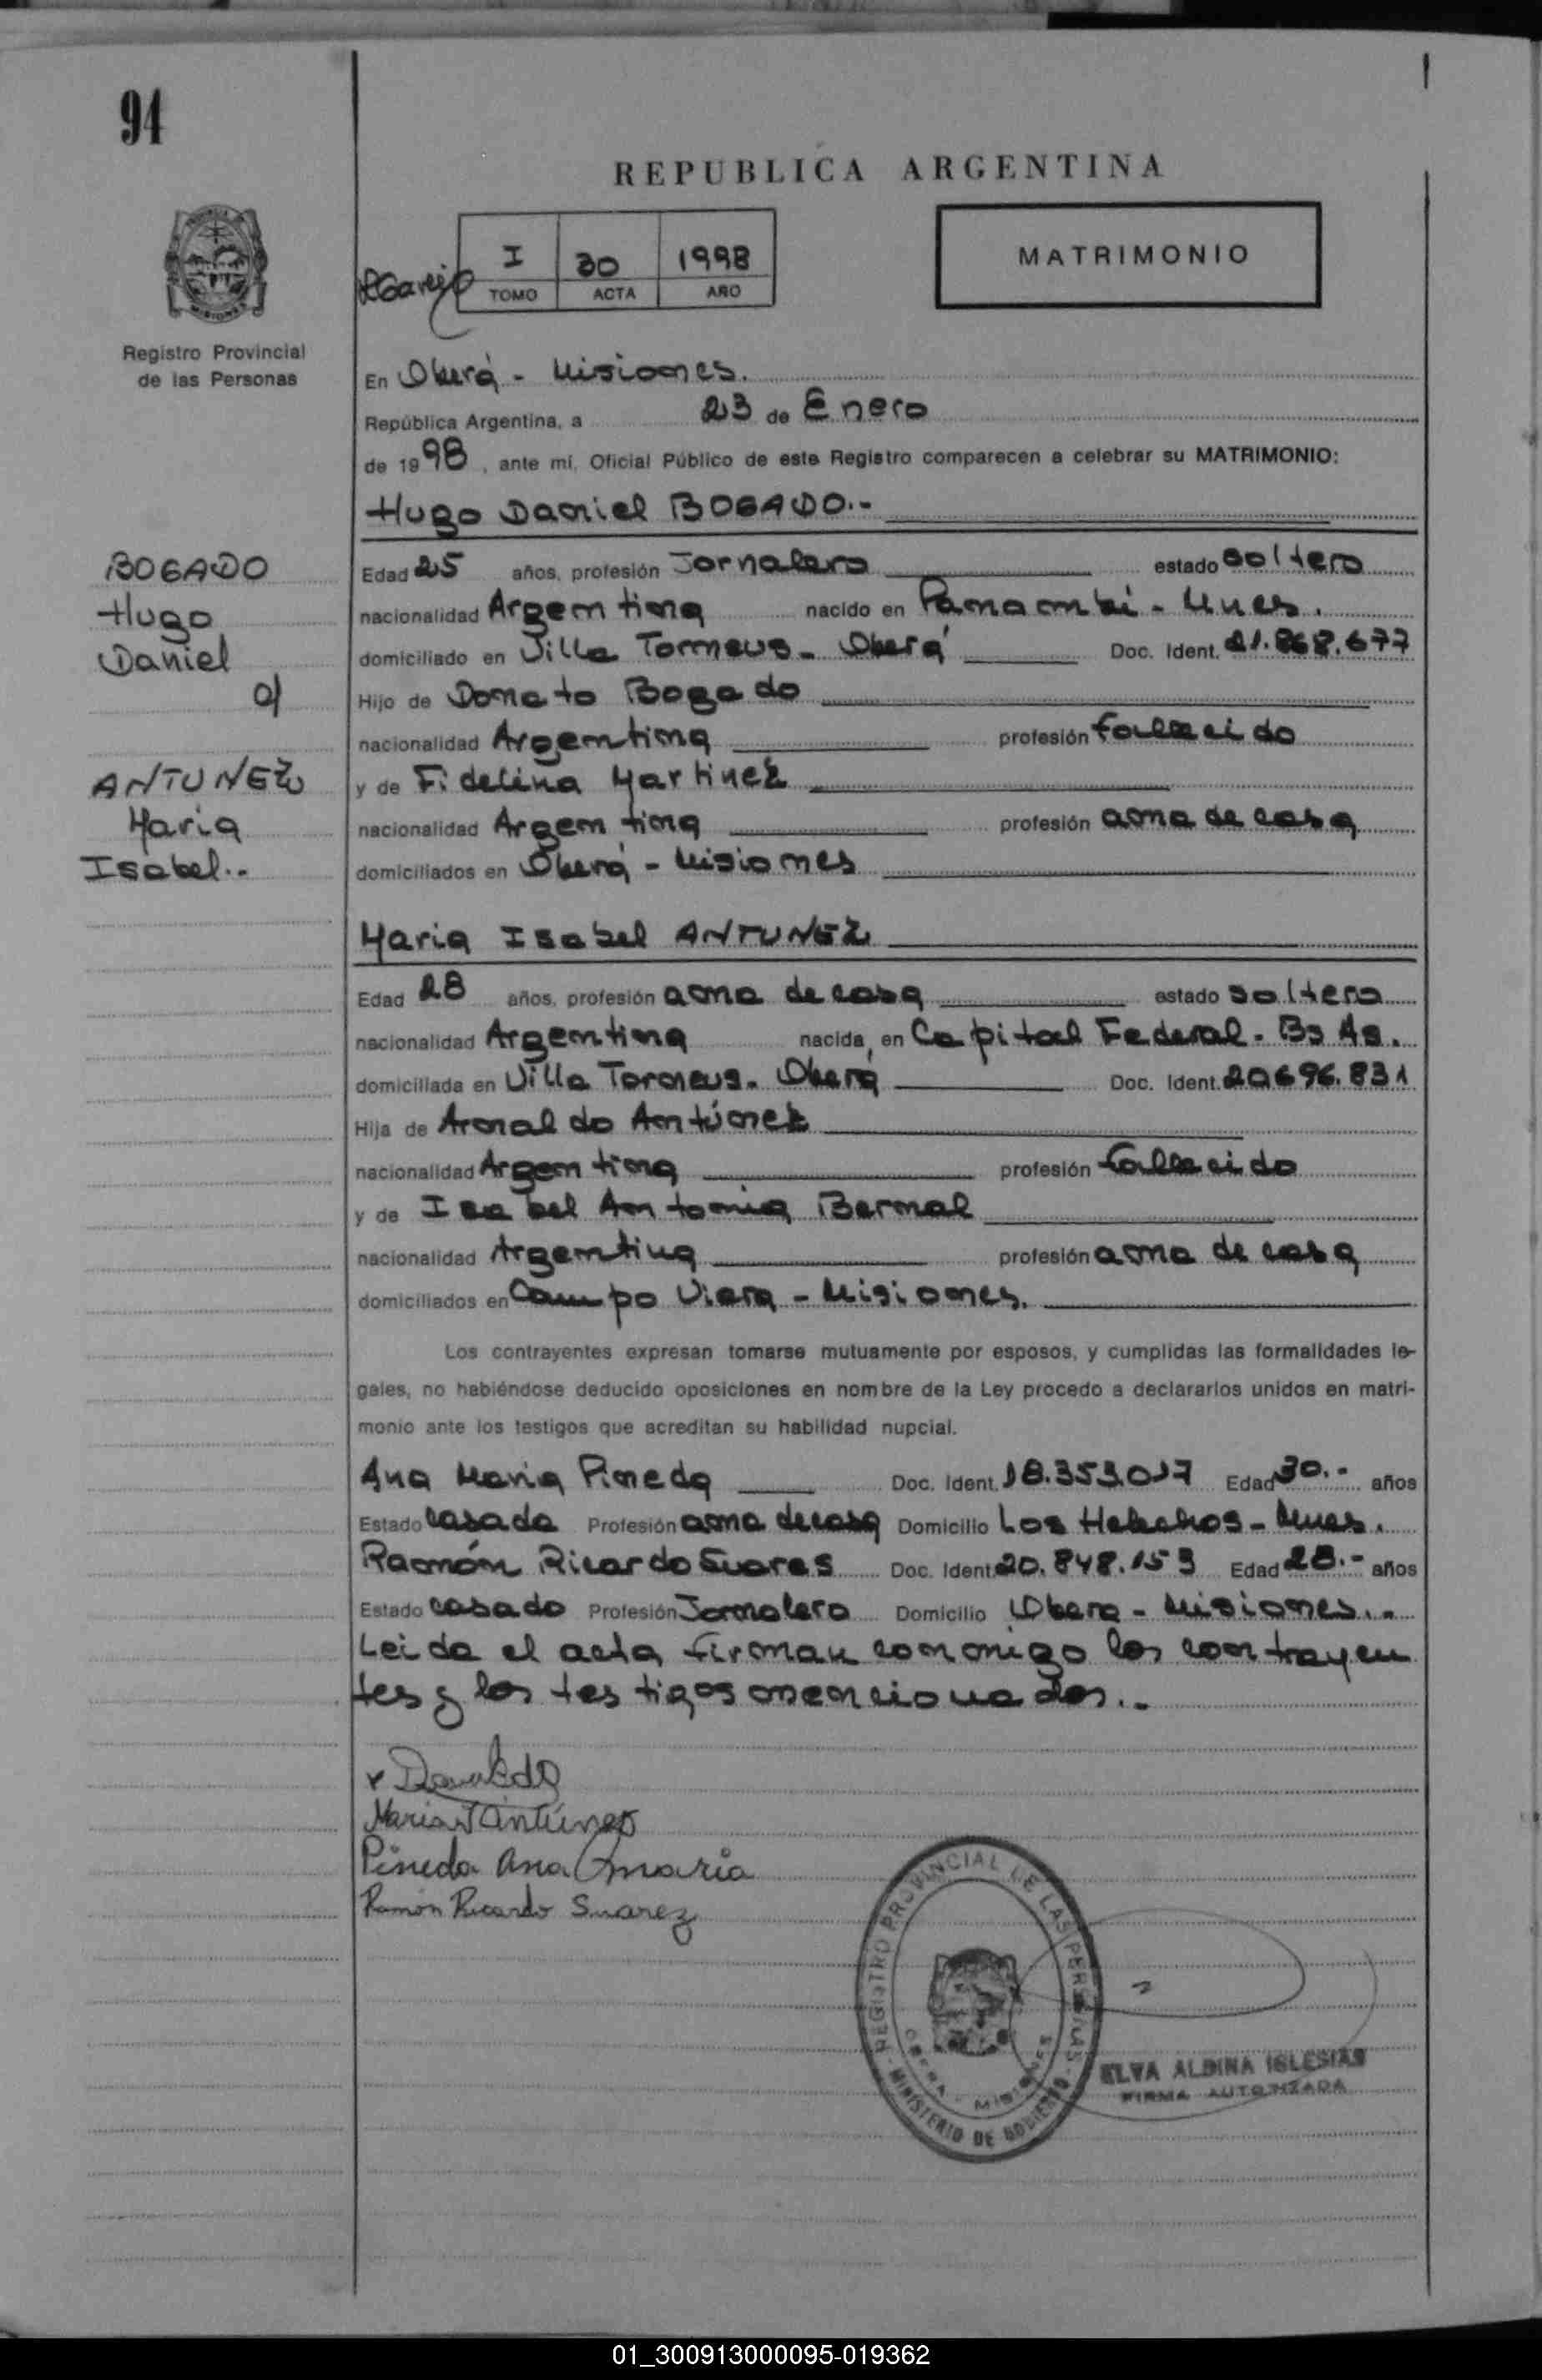 94
REPUBLICA ARGENTINA
I 30 1998
TOMO ACTA AÑO
MATRIMONIO
Registro Provincial
de las Personas
En Oberá - Misiones.
República Argentina, a 23 de Enero
de 1998, ante mí, Oficial Público de este Registro comparecen a celebrar su MATRIMONIO:
Hugo Daniel BOGADO.-
BOGADO
Hugo
Daniel
c/
ANTUNEZ
Maria
Isabel.-
Edad 25 años, profesión Jornalero estado soltero
nacionalidad Argentina nacido en Panambí - Mnes.
domiciliado en Villa Torneus - Oberá Doc. Ident. 21.868.677
Hijo de Donato Bogado
nacionalidad Argentina profesión fallecido
y de Fidelina Martinez
nacionalidad Argentina profesión ama de casa
domiciliados en Oberá - Misiones
Maria Isabel ANTUNEZ
Edad 28 años, profesión ama de casa estado soltera
nacionalidad Argentina nacida en Capital Federal - Bs As.
domiciliada en Villa Torneus - Oberá Doc. Ident. 20.696.831
Hija de Arnaldo Antúnez
nacionalidad Argentina profesión fallecido
y de Isabel Antonia Bernal
nacionalidad Argentina profesión ama de casa
domiciliados en Campo Viera - Misiones.
Los contrayentes expresan tomarse mutuamente por esposos, y cumplidas las formalidades le-
gales, no habiéndose deducido oposiciones en nombre de la Ley procedo a declararlos unidos en matri-
monio ante los testigos que acreditan su habilidad nupcial.
Ana Maria Pineda Doc. Ident. 18.353.017 Edad 30.- años
Estado casada Profesión ama de casa Domicilio Los Helechos - Mnes.
Ramón Ricardo Suares Doc. Ident. 20.848.153 Edad 28.- años
Estado casado Profesión Jornalero Domicilio Obera - Misiones.-
Leida el acta firman conmigo los contrayen
tes y los testigos mencionados.-
Maria I Antúnez
Pineda Ana Maria
Ramón Ricardo Suarez
REGISTRO PROVINCIAL DE LAS PERSONAS
OBERA - MISIONES
MINISTERIO DE GOBIERNO
ELVA ALBINA IGLESIAS
FIRMA AUTORIZADA
01_300913000095-019362